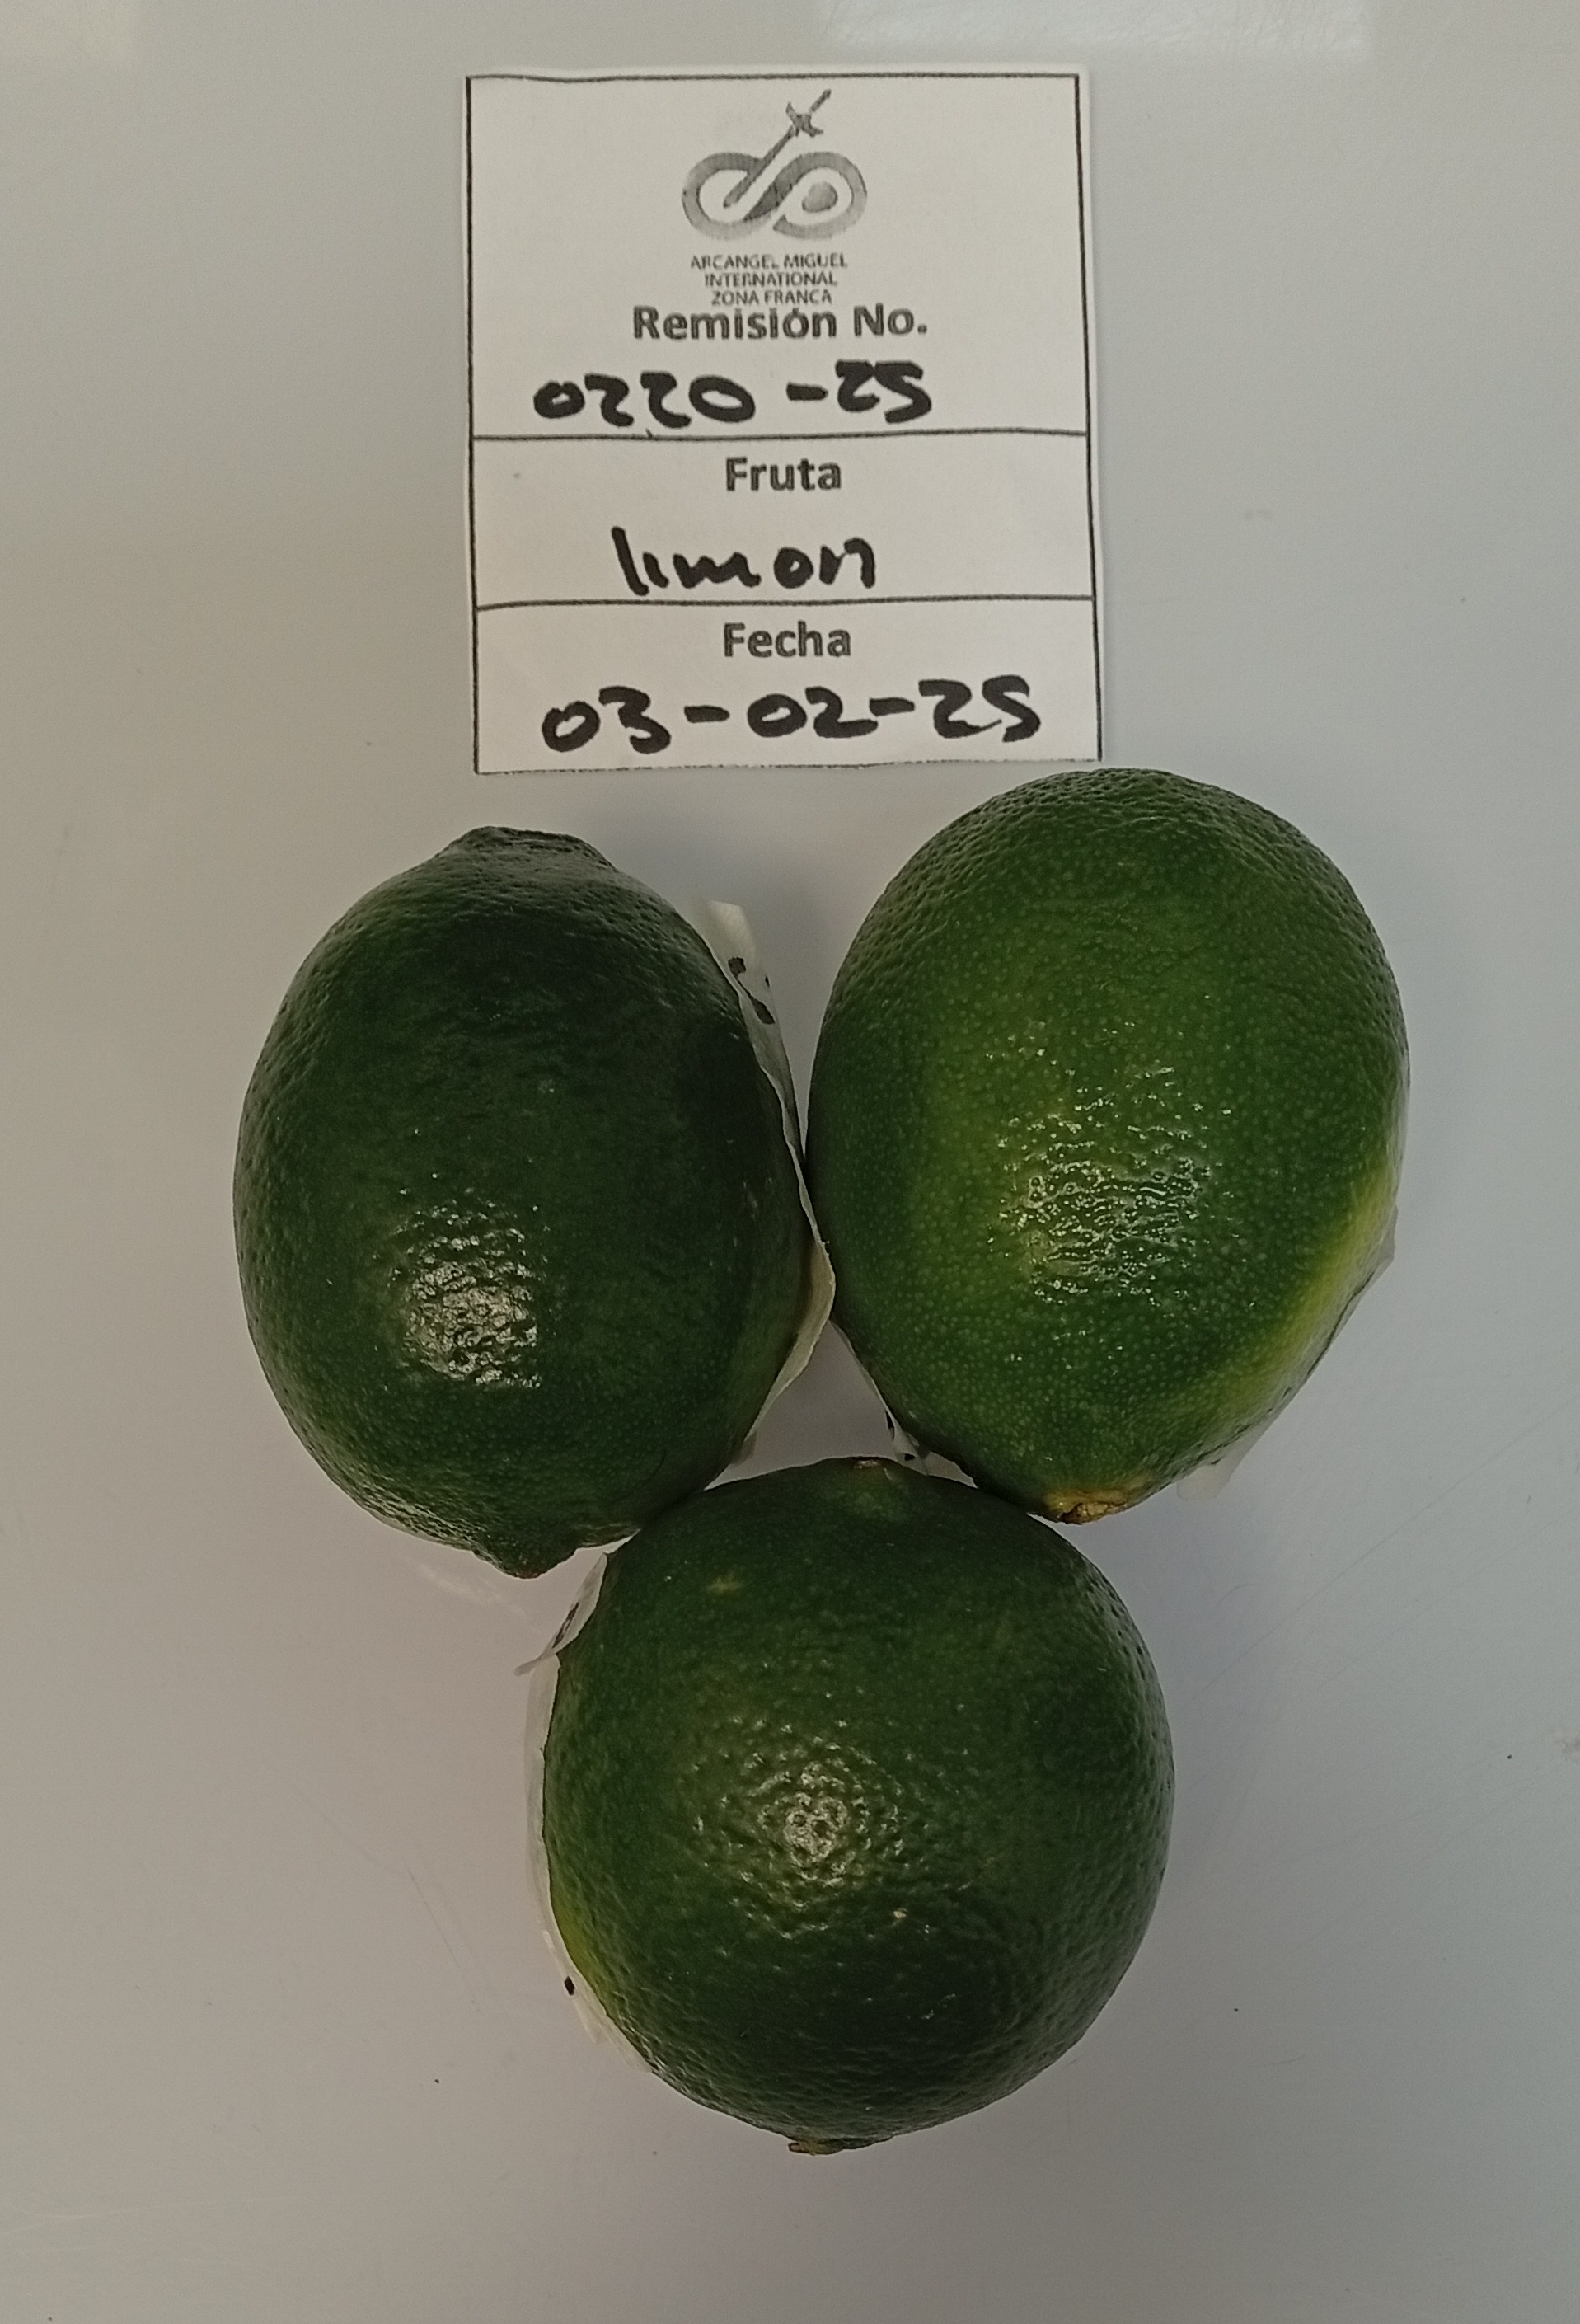 ARCANGEL MIGUEL
INTERNATIONAL
ZONA FRANCA
Remisión No.
0220-25
Fruta
limon
Fecha
03-02-25